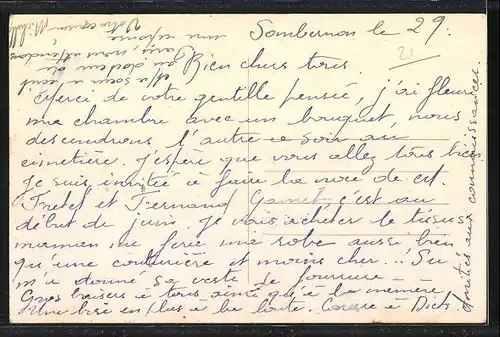 Sombernon le 29.
Bien chers tous.
Merci de votre gentille pensée, j'ai fleuri
ma chambre avec un bouquet, nous
descendrons l'autre ce soir au
cimetière. J'espère que vous allez tous bien
Je suis invitée à faire la noce de
et Fernand c'est au
début de juin. Je vais acheter le tissus
maman me fera ma robe aussi bien
qu'une couturière et moins cher...
m'a donné sa veste de fourrure
Gros baisers à tous ainsi qu'à la mémère
Une bise en plus à
amitiés aux connaissances.
Ma sœur a
au docteur
avis, nous attendons
une réponse
Votre